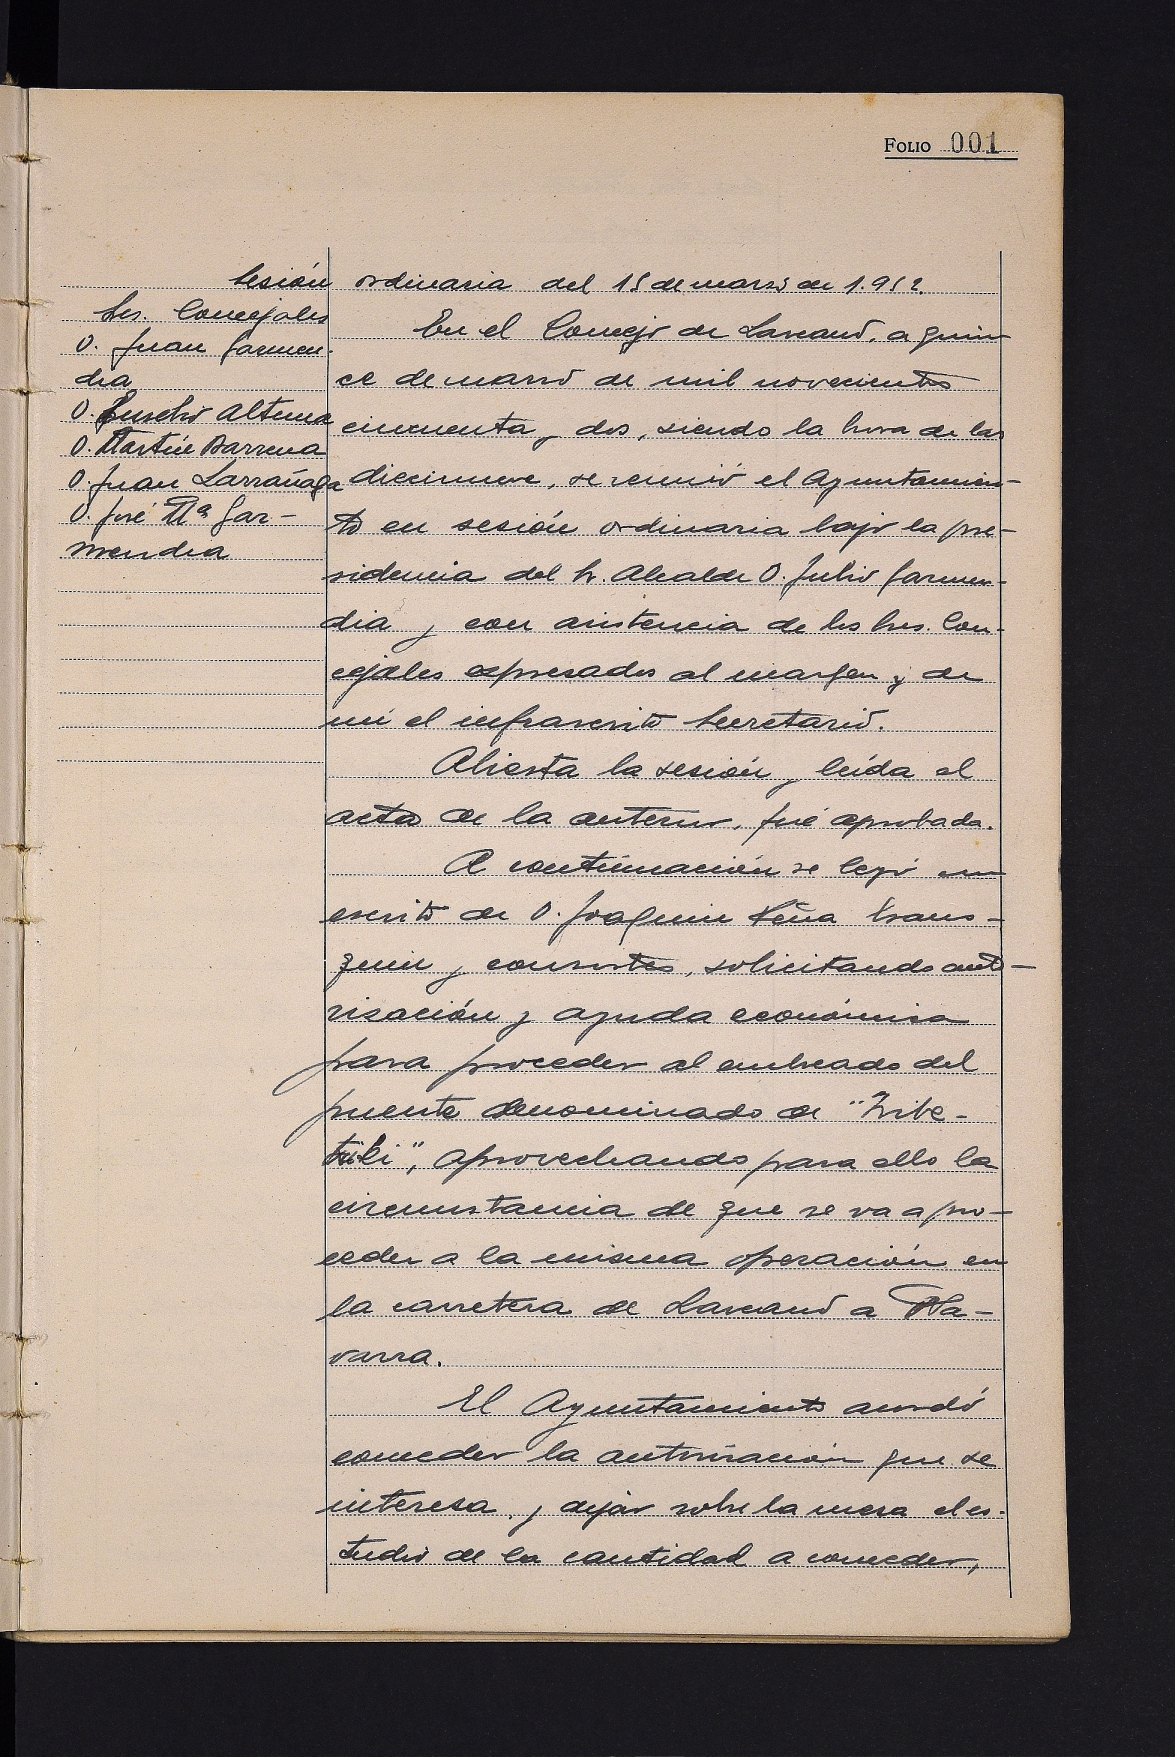 FOLIO 001
Sesión ordinaria del 15 de marzo de 1.952.
Sres. Concejales
D. Juan Garmen-
dia
D. Eusebio Altuna
D. Martín Barrena
D. Juan Larrañaga
D. José Mª Gar-
mendia
En el Concejo de Lazcano, a quin-
ce de marzo de mil novecientos
cincuenta y dos, siendo la hora de las
diecinueve, se reunió el Ayuntamien-
to en sesión ordinaria bajo la pre-
sidencia del Sr. Alcalde D. Julio Garmen-
dia y con asistencia de los Sres. Con-
cejales expresados al margen y de
mí el infrascrito Secretario.
Abierta la sesión y leída el
acta de la anterior, fué aprobada.
A continuación se leyó un
escrito de D. Joaquin Peña
y consortes, solicitando auto-
rización y ayuda económica
para proceder al embreado del
puente denominado de "Zube-
txiki", aprovechando para ello la
circunstancia de que se va a pro-
ceder a la misma operación en
la carretera de Lazcano a Na-
varra.
El Ayuntamiento acordó
conceder la autorización que se
interesa, y dejar sobre la mesa el es-
tudio de la cantidad a conceder,